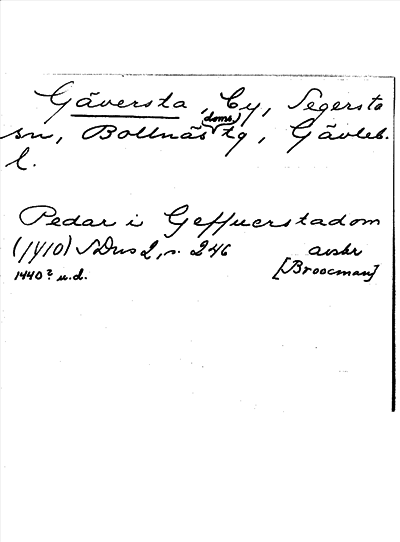 Gäversta, by, Segersta
sn, Bollnäs (doms) tg, Gävleb.
l.
Pedar i Geffuerstadom
(1410) SDns 2, s. 246 avskr
1440? u.d. [Broocman]